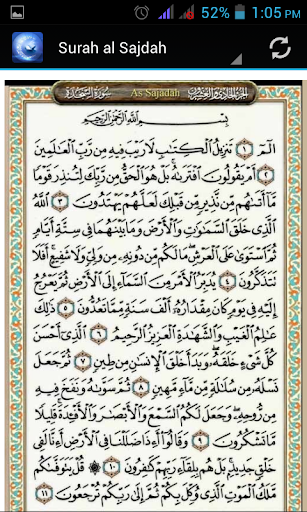 52% 1:05 PM
Surah al Sajdah
سورة السجدة As-Sajadah الجزء الحادي والعشرون
بِسْمِ اللَّهِ الرَّحْمَٰنِ الرَّحِيمِ
الٓمٓ ١ تَنزِيلُ الْكِتَابِ لَا رَيْبَ فِيهِ مِن رَّبِّ الْعَالَمِينَ
٢ أَمْ يَقُولُونَ افْتَرَاهُ بَلْ هُوَ الْحَقُّ مِن رَّبِّكَ لِتُنذِرَ قَوْمًا
مَّا أَتَاهُم مِّن نَّذِيرٍ مِّن قَبْلِكَ لَعَلَّهُمْ يَهْتَدُونَ ٣ اللَّهُ
الَّذِي خَلَقَ السَّمَاوَاتِ وَالْأَرْضَ وَمَا بَيْنَهُمَا فِي سِتَّةِ أَيَّامٍ
ثُمَّ اسْتَوَىٰ عَلَى الْعَرْشِ مَا لَكُم مِّن دُونِهِ مِن وَلِيٍّ وَلَا شَفِيعٍ أَفَلَا
تَتَذَكَّرُونَ ٤ يُدَبِّرُ الْأَمْرَ مِنَ السَّمَاءِ إِلَى الْأَرْضِ ثُمَّ يَعْرُجُ
إِلَيْهِ فِي يَوْمٍ كَانَ مِقْدَارُهُ أَلْفَ سَنَةٍ مِّمَّا تَعُدُّونَ ٥ ذَٰلِكَ
عَالِمُ الْغَيْبِ وَالشَّهَادَةِ الْعَزِيزُ الرَّحِيمُ ٦ الَّذِي أَحْسَنَ
كُلَّ شَيْءٍ خَلَقَهُ وَبَدَأَ خَلْقَ الْإِنسَانِ مِن طِينٍ ٧ ثُمَّ جَعَلَ
نَسْلَهُ مِن سُلَالَةٍ مِّن مَّاءٍ مَّهِينٍ ٨ ثُمَّ سَوَّاهُ وَنَفَخَ فِيهِ
مِن رُّوحِهِ وَجَعَلَ لَكُمُ السَّمْعَ وَالْأَبْصَارَ وَالْأَفْئِدَةَ قَلِيلًا
مَّا تَشْكُرُونَ ٩ وَقَالُوا أَإِذَا ضَلَلْنَا فِي الْأَرْضِ أَإِنَّا لَفِي
خَلْقٍ جَدِيدٍ بَلْ هُم بِلِقَاءِ رَبِّهِمْ كَافِرُونَ ١٠ قُلْ يَتَوَفَّاكُم
مَّلَكُ الْمَوْتِ الَّذِي وُكِّلَ بِكُمْ ثُمَّ إِلَىٰ رَبِّكُمْ تُرْجَعُونَ ١١